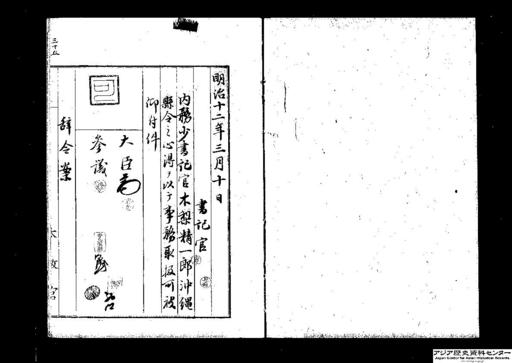 三十五
明治十二年三月十日
書記官
内務少書記官木梨精一郎沖縄
縣令之心得ヲ以テ事務取扱可被
仰付件
大臣
参議
辞令案
太政官
アジア歴史資料センター
Japan Center for Asian Historical Records